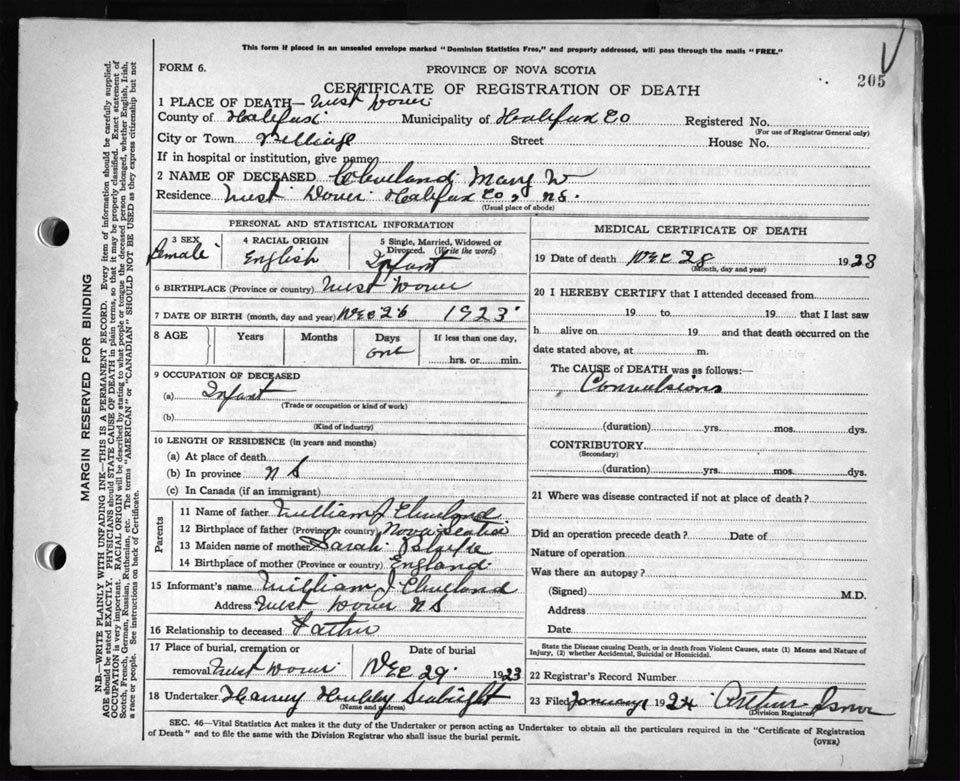 This form if placed in an unsealed envelope marked "Dominion Statistics Free," and properly addressed, will pass through the mails "FREE."
FORM 6.
PROVINCE OF NOVA SCOTIA
205
CERTIFICATE OF REGISTRATION OF DEATH
1 PLACE OF DEATH— West Dover
County of Halifax Municipality of Halifax Co Registered No.
(For use of Registrar General only)
City or Town Village Street House No.
If in hospital or institution, give name
2 NAME OF DECEASED Cleveland Mary W
Residence West Dover Halifax Co, N.S.
(Usual place of abode)
PERSONAL AND STATISTICAL INFORMATION
3 SEX Female
4 RACIAL ORIGIN English
5 Single, Married, Widowed or Divorced. (Write the word) Infant
6 BIRTHPLACE (Province or country) West Dover
7 DATE OF BIRTH (month, day and year) Dec 26 1923
8 AGE Years Months Days one If less than one day, hrs. or min.
9 OCCUPATION OF DECEASED
(a) Infant
(Trade or occupation or kind of work)
(b)
(Kind of industry)
10 LENGTH OF RESIDENCE (in years and months)
(a) At place of death
(b) In province N S
(c) In Canada (if an immigrant)
Parents
11 Name of father William J Cleveland
12 Birthplace of father (Province or country) Nova Scotia
13 Maiden name of mother Sarah
14 Birthplace of mother (Province or country) England
15 Informant's name William J Cleveland
Address West Dover N S
16 Relationship to deceased Father
17 Place of burial, cremation or removal West Dover
Date of burial Dec 29 1923
18 Undertaker Harvey Hubley Seabright
(Name and address)
MEDICAL CERTIFICATE OF DEATH
19 Date of death Dec 28 1923
(Month, day and year)
20 I HEREBY CERTIFY that I attended deceased from
19 to 19 that I last saw
h alive on 19 and that death occurred on
date stated above, at m.
The CAUSE of DEATH was as follows:—
Convulsions
(duration) yrs. mos. dys.
CONTRIBUTORY
(Secondary)
(duration) yrs. mos. dys.
21 Where was disease contracted if not at place of death?
Did an operation precede death? Date of
Nature of operation
Was there an autopsy?
(Signed) M.D.
Address
Date
State the Disease causing Death, or in death from Violent Causes, state (1) Means and Nature of Injury, (2) whether Accidental, Suicidal or Homicidal.
22 Registrar's Record Number
23 Filed January 1924 Arthur
(Division Registrar)
SEC. 46—Vital Statistics Act makes it the duty of the Undertaker or person acting as Undertaker to obtain all the particulars required in the "Certificate of Registration
of Death" and to file the same with the Division Registrar who shall issue the burial permit.
(OVER)
MARGIN RESERVED FOR BINDING
N.B.—WRITE PLAINLY WITH UNFADING INK—THIS IS A PERMANENT RECORD. Every item of information should be carefully supplied.
AGE should be stated EXACTLY. PHYSICIANS should STATE CAUSE OF DEATH in plain terms, so that it may be properly classified. Exact statement of
OCCUPATION is very important. RACIAL ORIGIN will be described by stating to what people or tongue the deceased person belonged, whether English, Irish,
Scotch, French, German, Russian, Ruthenian, etc. The terms "AMERICAN" or "CANADIAN" SHOULD NOT BE USED as they express citizenship but not
a race or people. See instructions on back of Certificate.